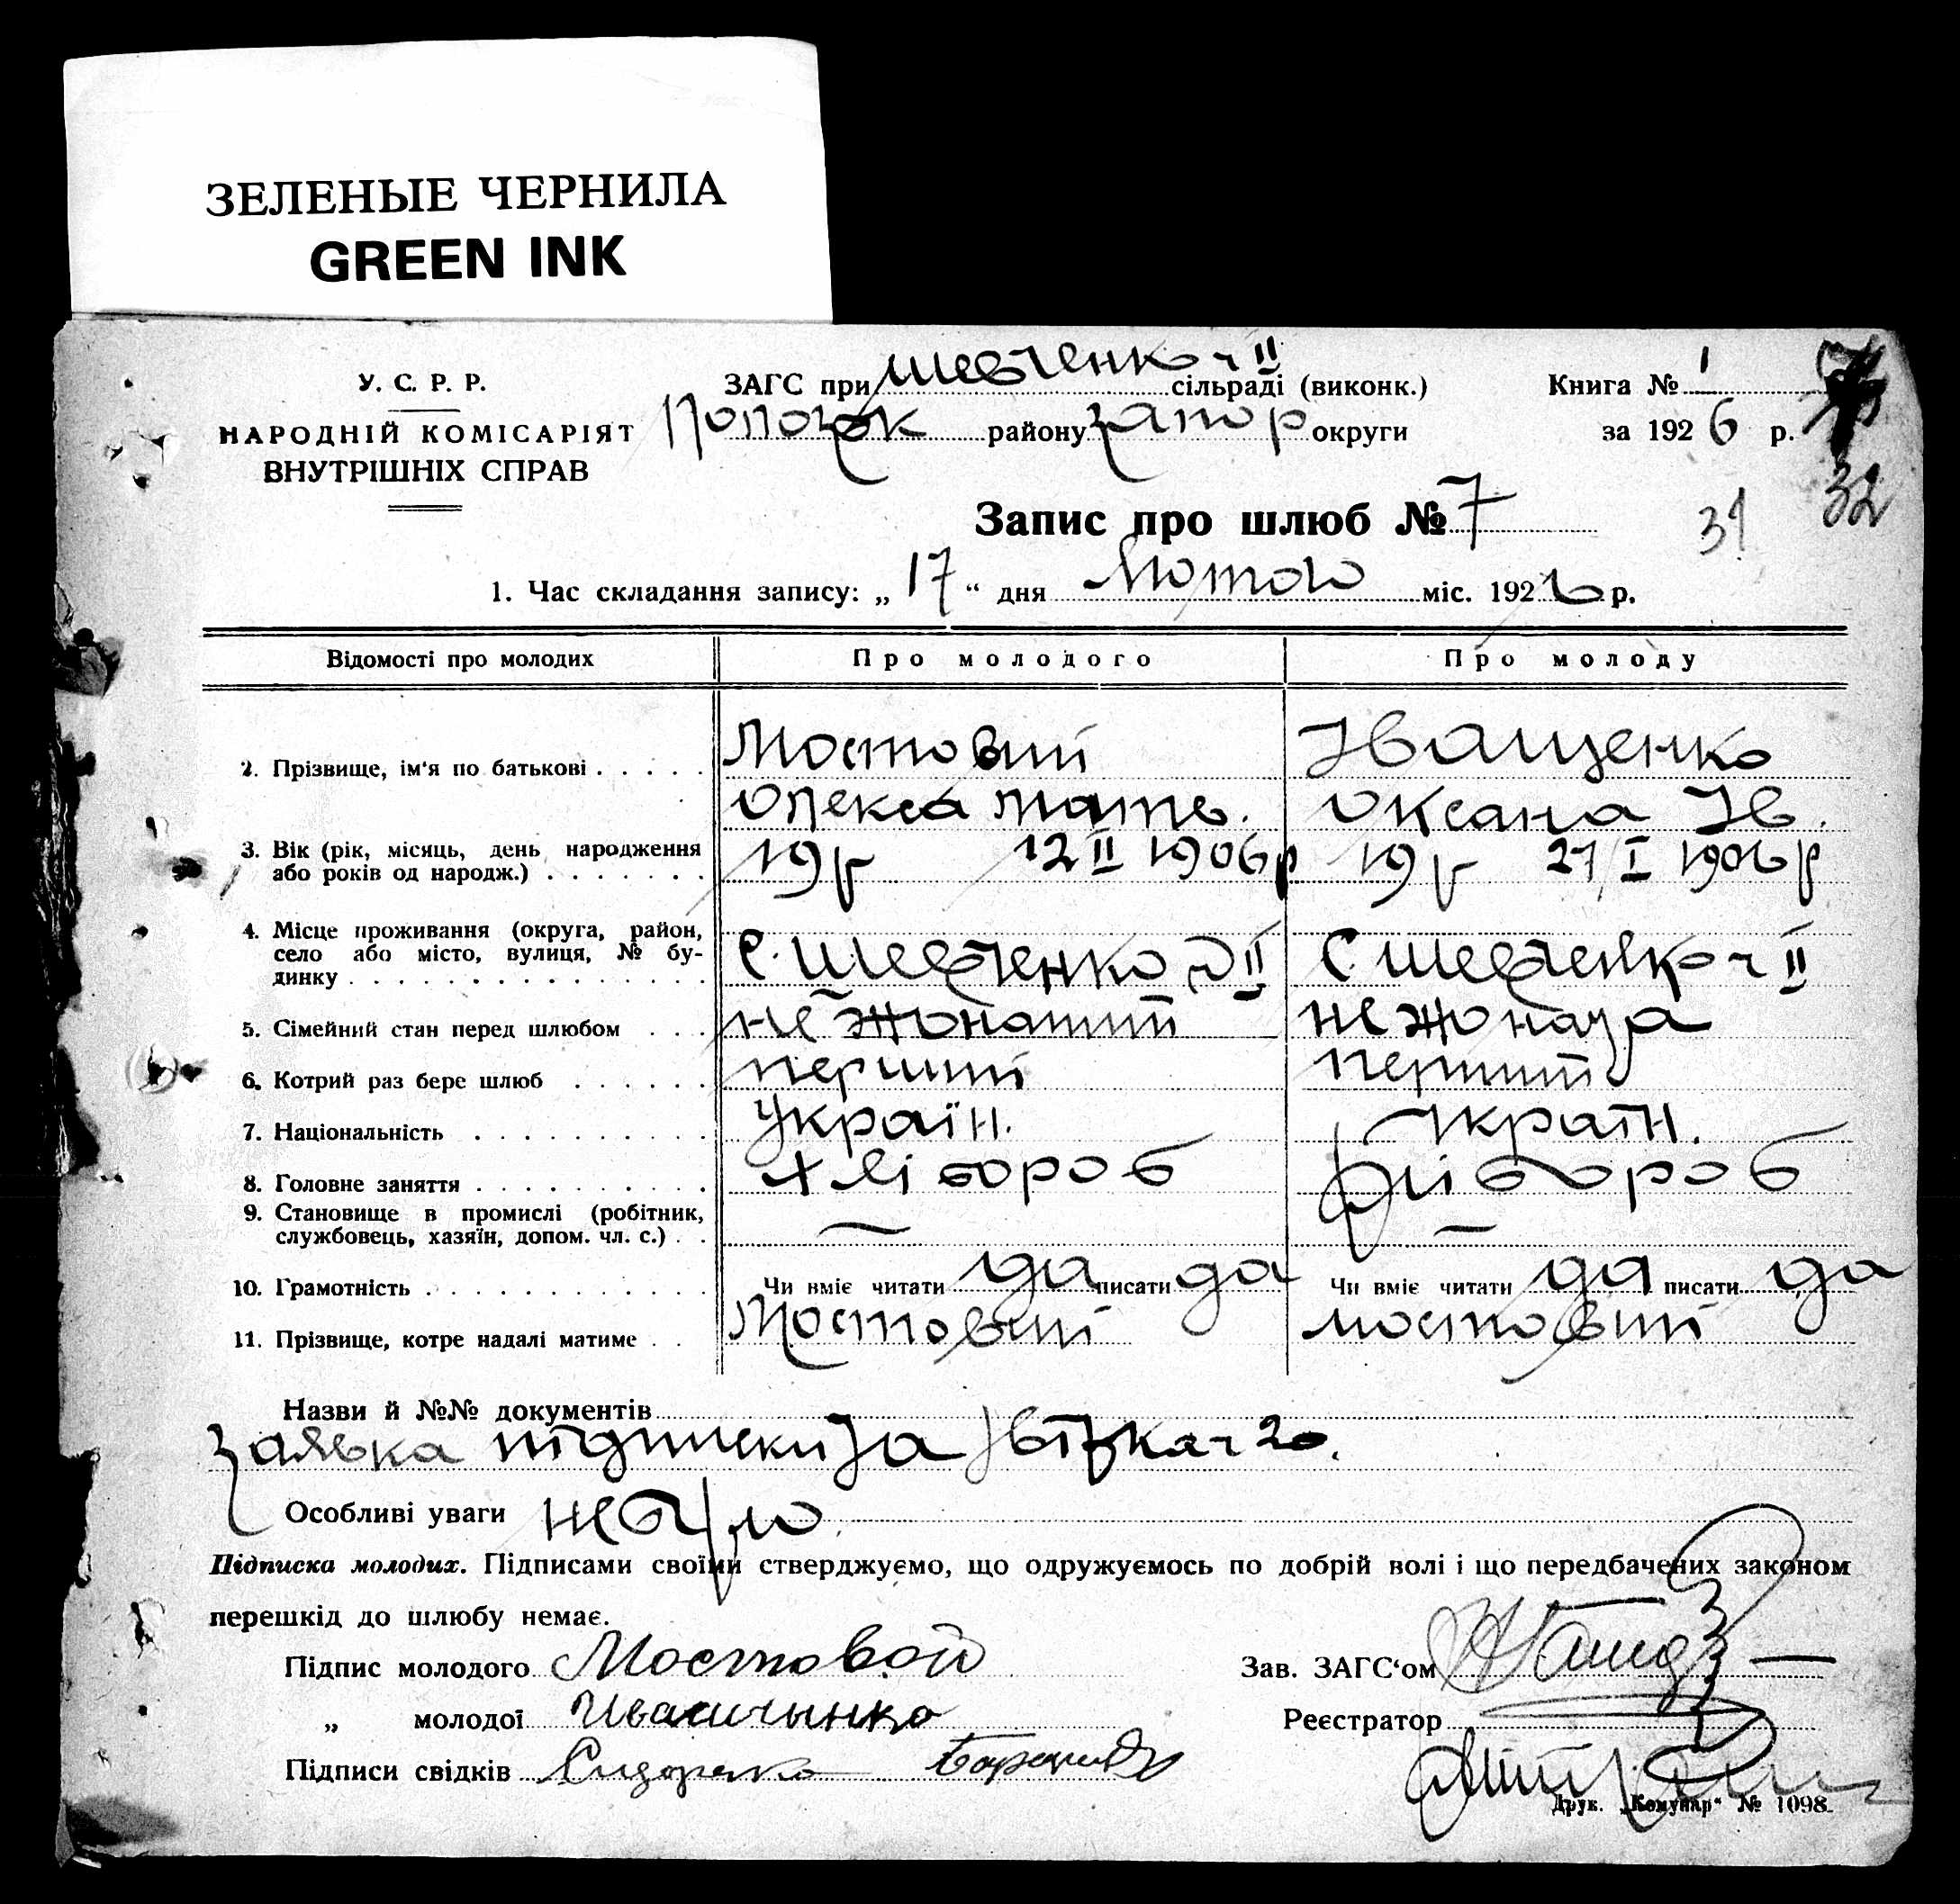 ЗЕЛЕНЫЕ ЧЕРНИЛА
GREEN INK
У. С. Р. Р.
НАРОДНІЙ КОМІСАРІЯТ
ВНУТРІШНІХ СПРАВ
ЗАГС при Шевченко ч II сільраді (виконк.)
району Запор округи
Книга № 1
за 1926 р.
32
31
Запис про шлюб № 7
1. Час складання запису: „17“ дня Лютого міс. 1926 р.
Відомості про молодих Про молодого Про молоду
2. Прізвище, ім'я по батькові . . . . . Мостовий Іващенко
Олекса Матв. Оксана Ів.
3. Вік (рік, місяць, день народження або років од народж.) . . . . . . . 19 р 12 II 1906 р 19 р 21/I 1906 р
4. Місце проживання (округа, район, село або місто, вулиця, № будинку . . . . . . . . . . . . . . . с. Шевченко ч II с Шевченко ч II
5. Сімейний стан перед шлюбом . . . не жонатий не жоната
6. Котрий раз бере шлюб . . . . . . перший перший
7. Національність . . . . . . . . . . Україн. Україн.
8. Головне заняття . . . . . . . . . . хлібороб хлібороб
9. Становище в промислі (робітник, службовець, хазяїн, допом. чл. с.) . . — —
10. Грамотність . . . . . . . . . . . . Чи вміє читати да писати да Чи вміє читати да писати да
11. Прізвище, котре надалі матиме . . Мостовий мостовий
Назви й №№ документів
заявка підписки за
Особливі уваги небуло
Підписка молодих. Підписами своїми стверджуємо, що одружуємось по добрій волі і що передбачених законом
перешкід до шлюбу немає.
Підпис молодого Мостовой Зав. ЗАГС'ом
„ молодої Иващынко Реєстратор
Підписи свідків
Друк. „Комунар“ № 1098.